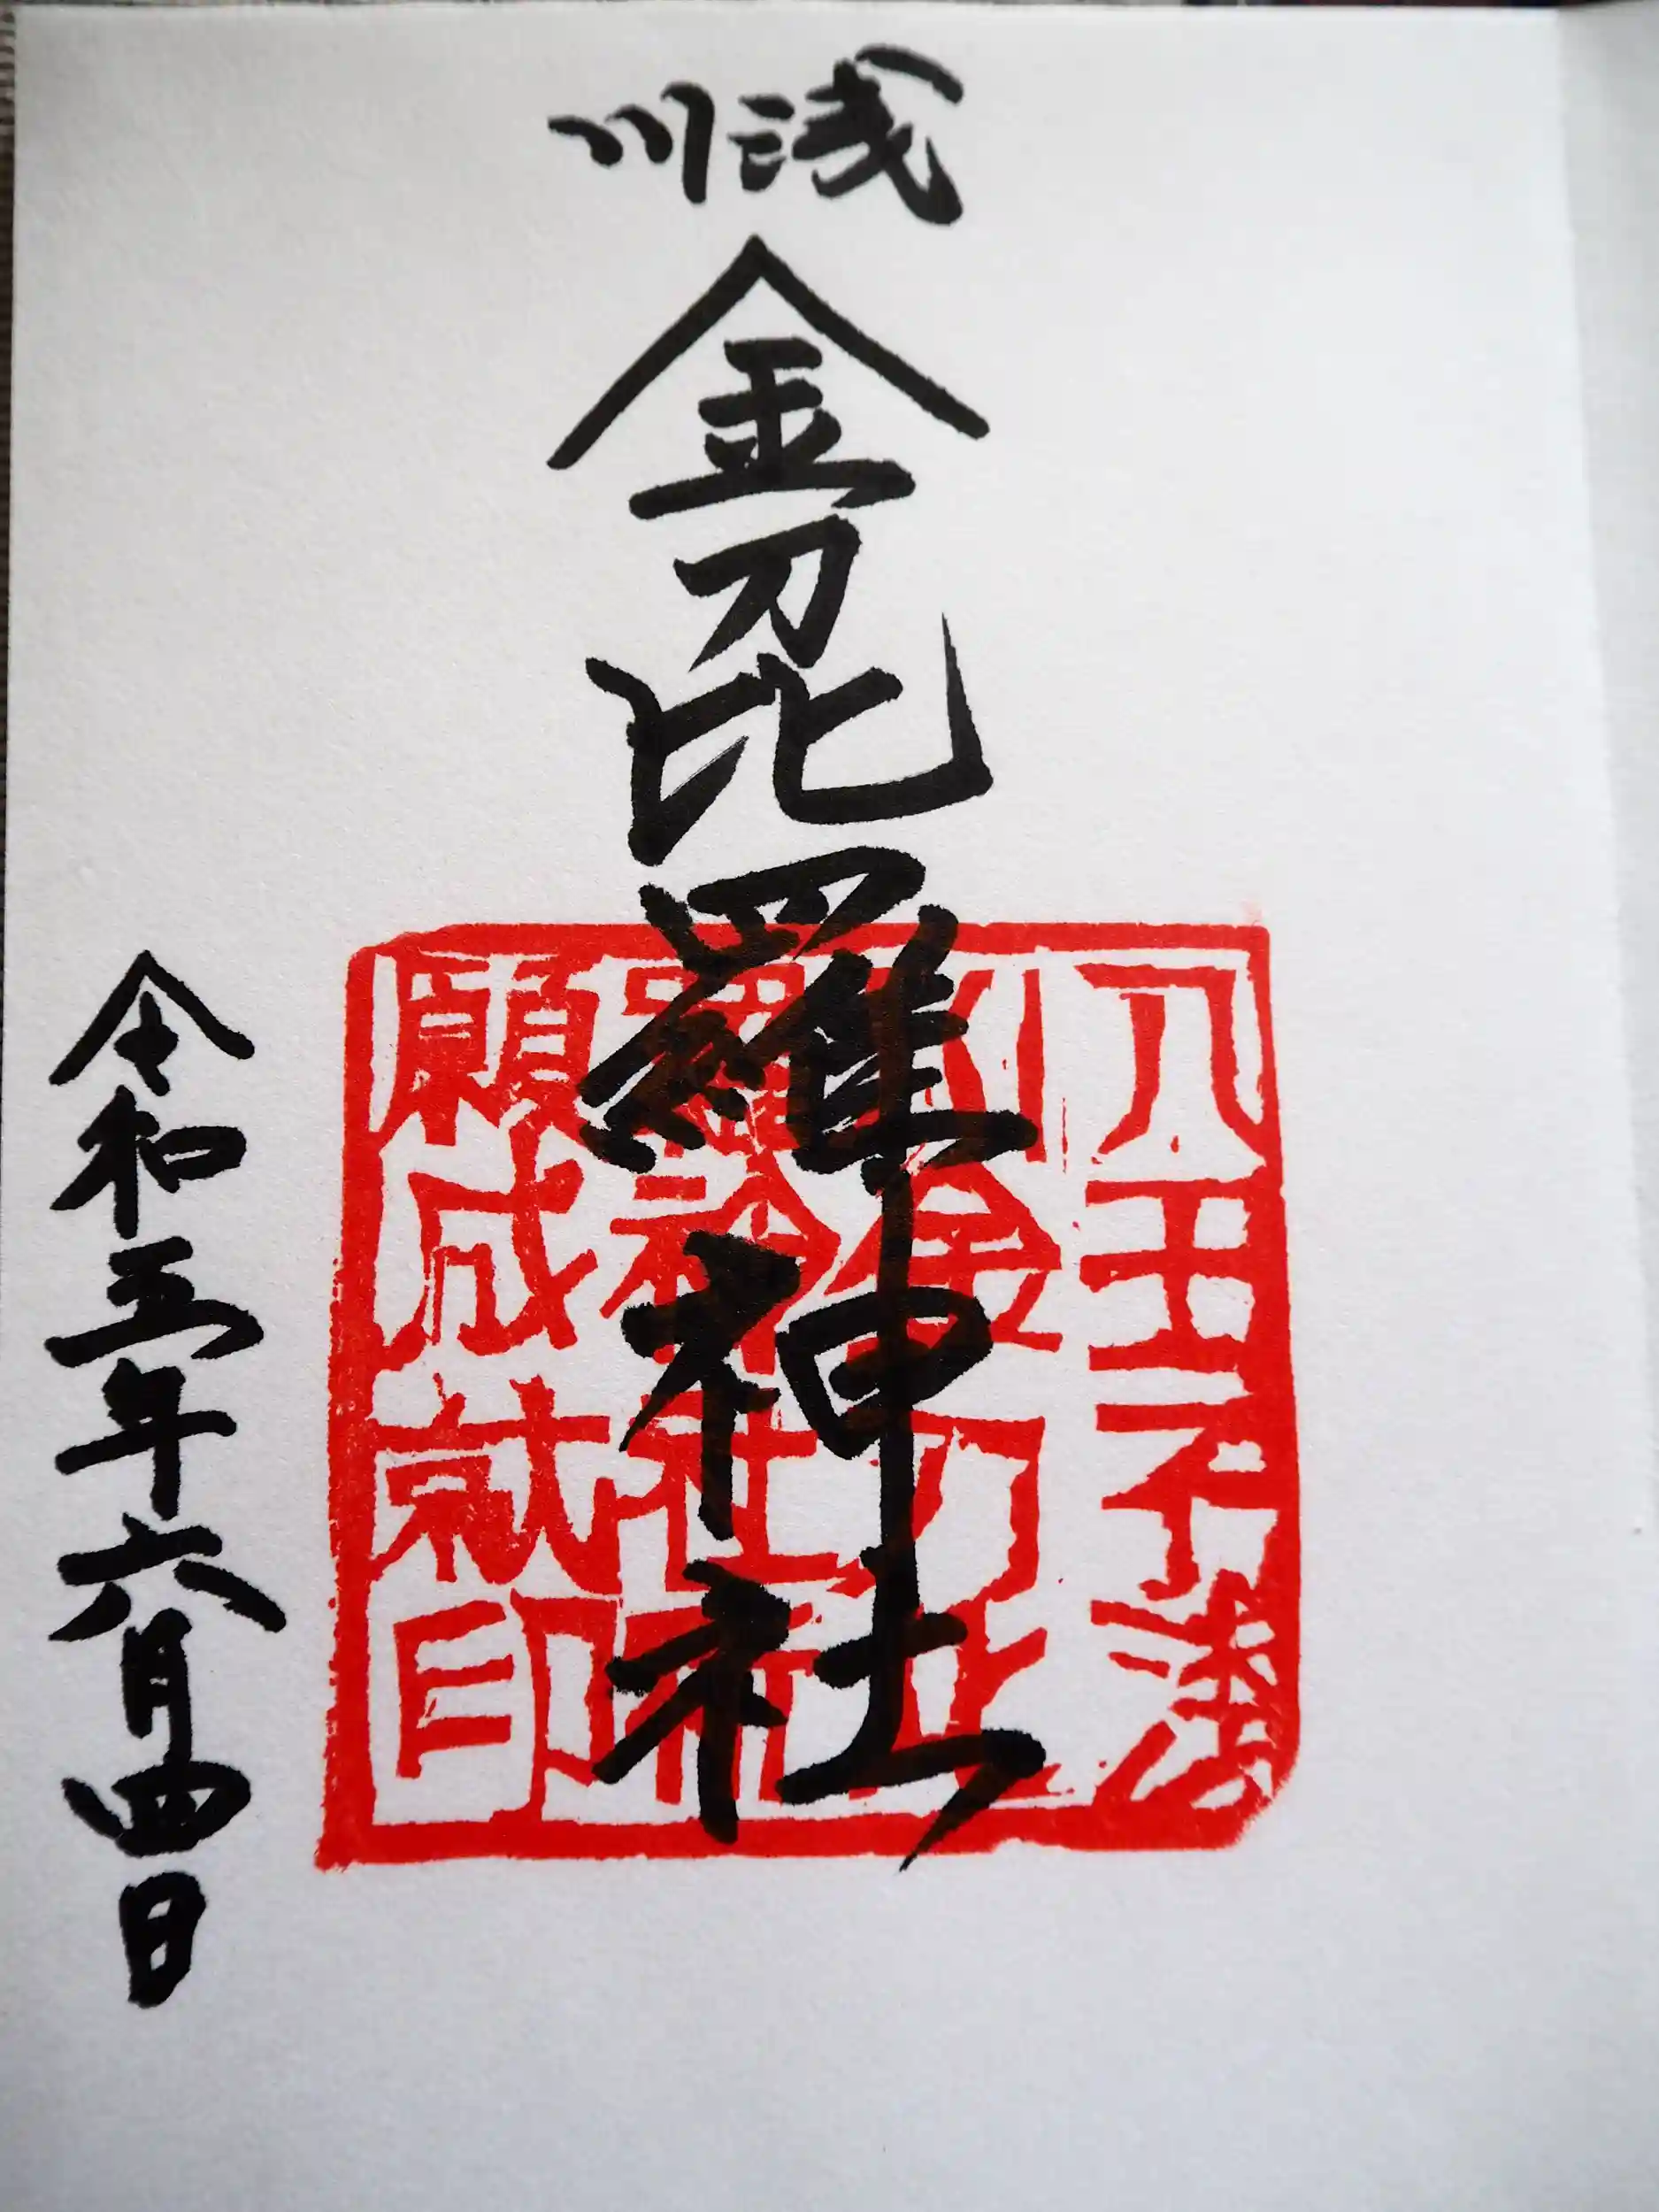 浅川
金刀比羅神社
八王子浅
川金刀比
羅神社祈
願成就印
令和五年六月四日